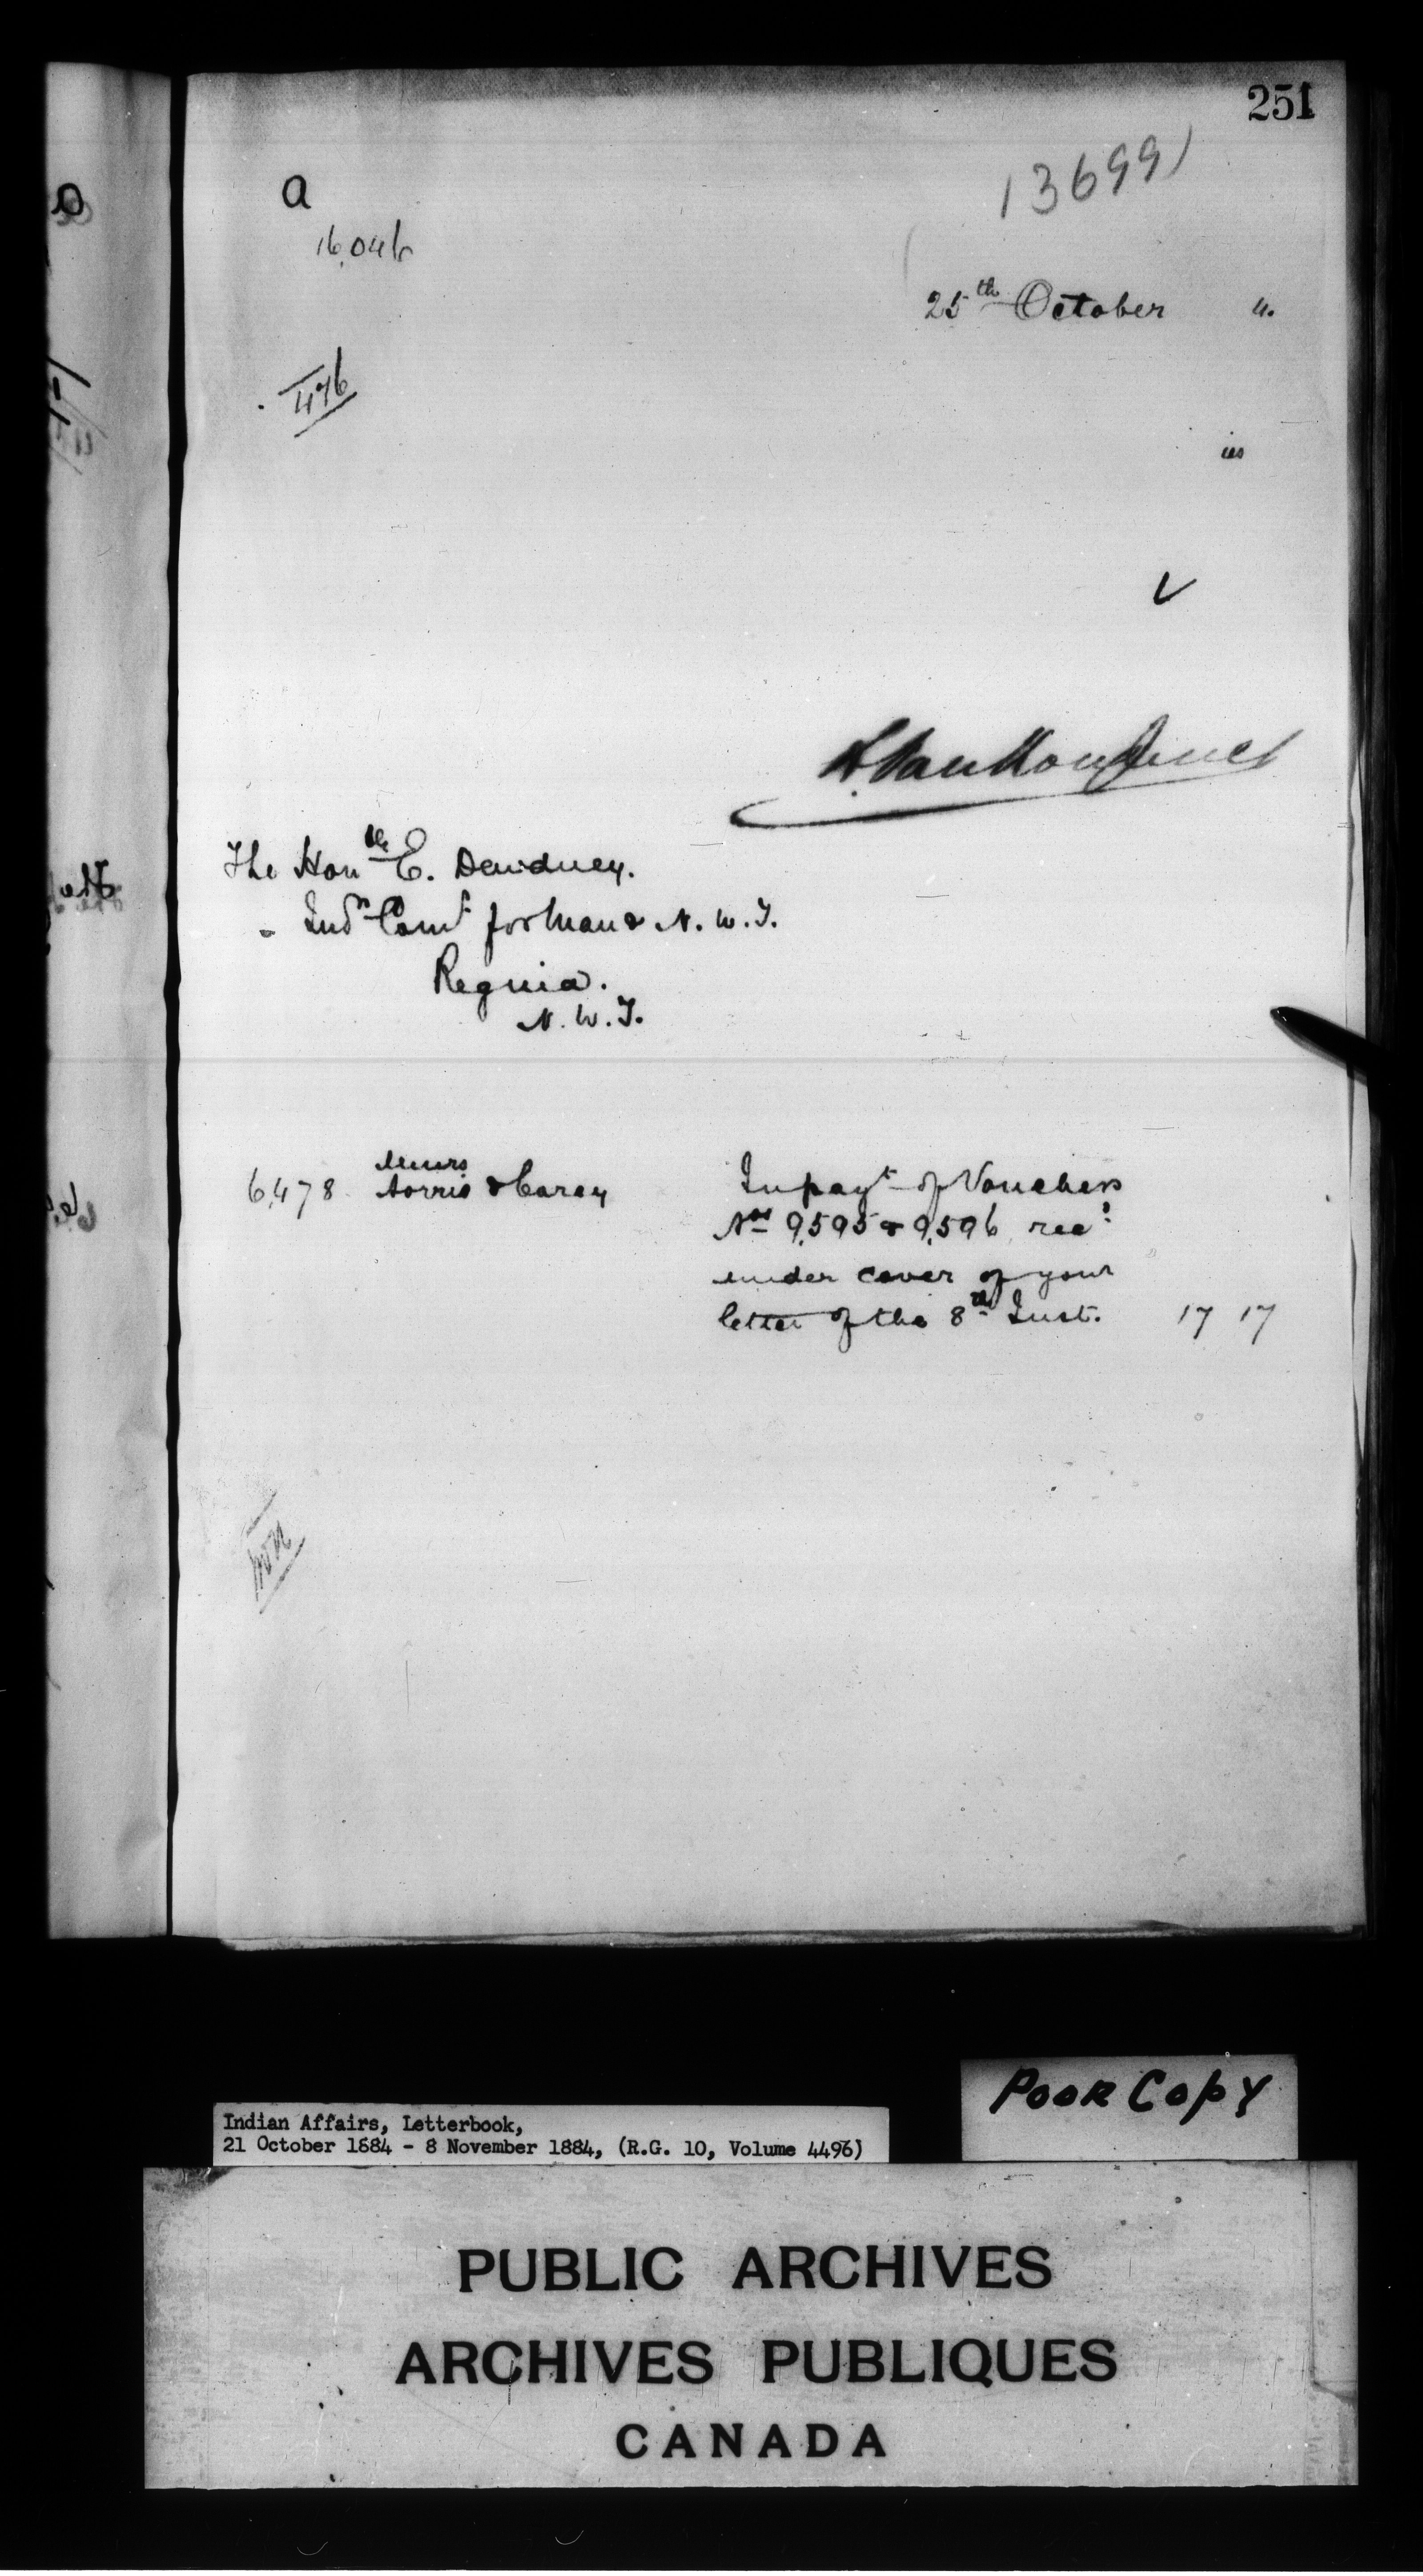 251
13699
a
16,046
25th October 4.
476
is
L. VanKoughnet
The Honble E. Dewdney.
Indn Comr for Man & N. W. T.
Regina.
N. W. T.
Messrs
6,478 Norris & Carey In payt of Vouchers
Nos 9,595 & 9,596 recd
under cover of your
letter of the 8th Inst. 17 17
Poor Copy
Indian Affairs, Letterbook,
21 October 1884 - 8 November 1884, (R.G. 10, Volume 4496)
PUBLIC ARCHIVES
ARCHIVES PUBLIQUES
CANADA